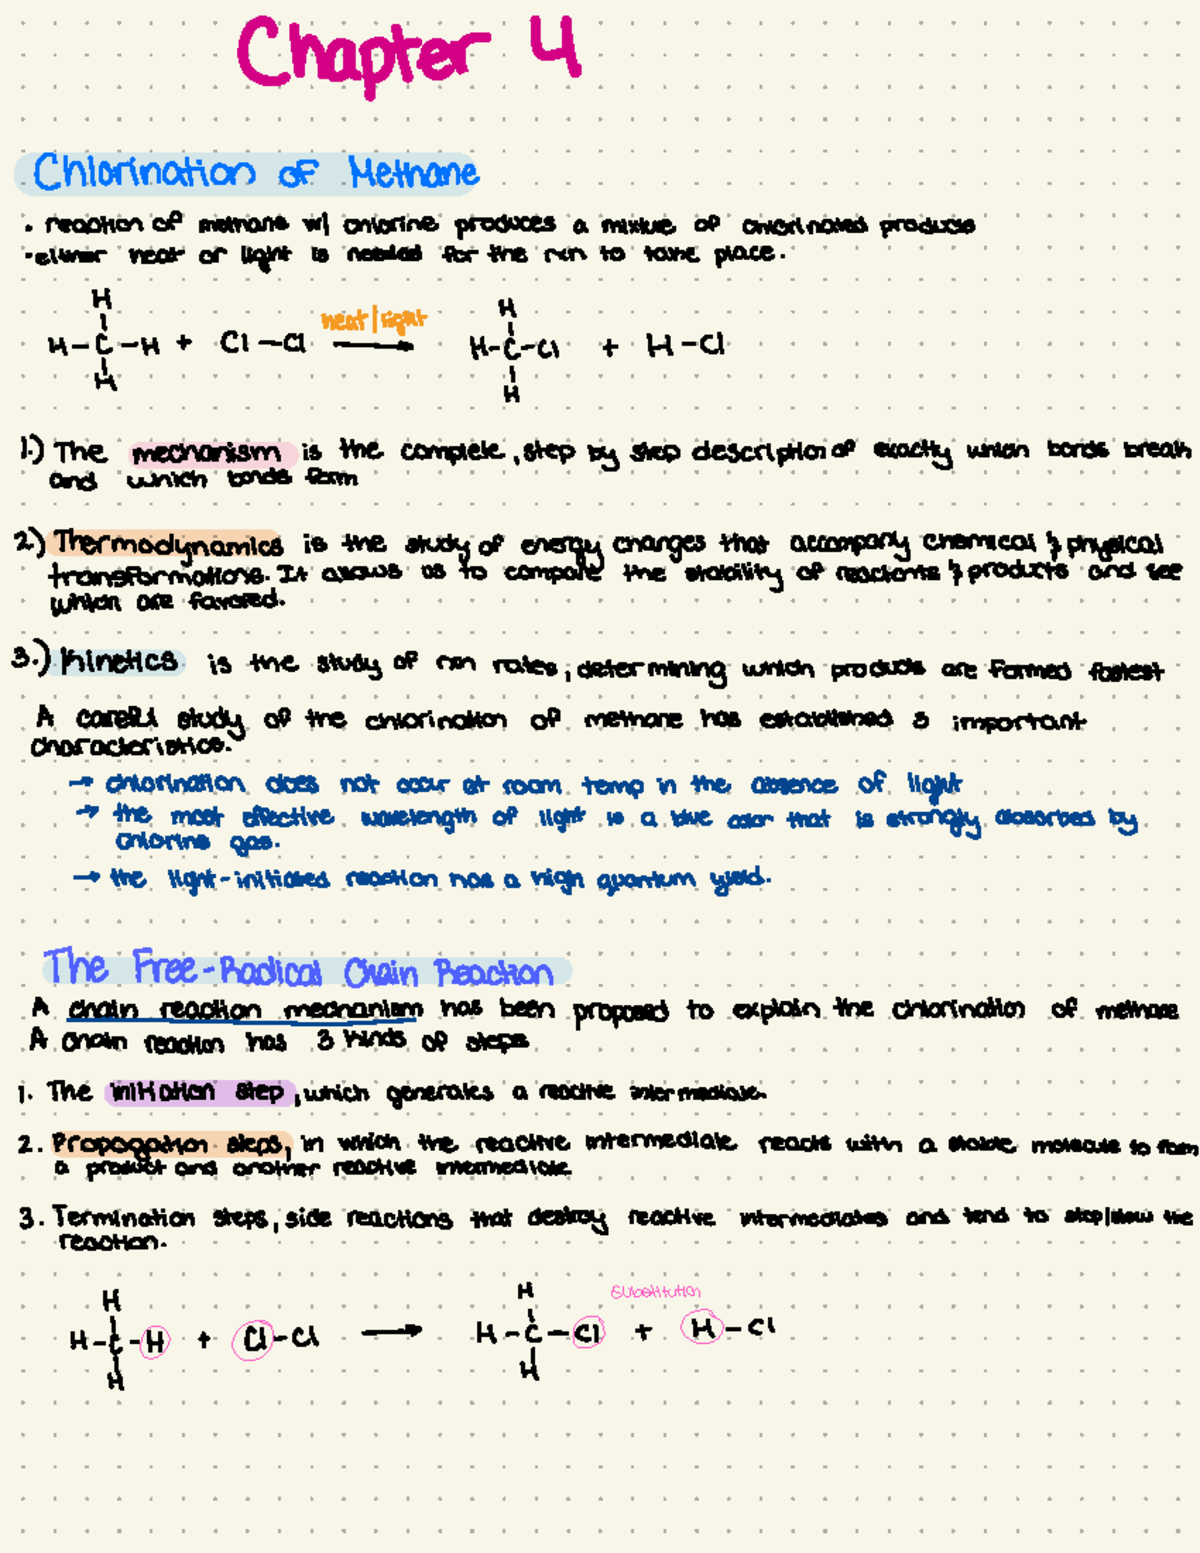 Chapter 4
Chlorination of Methane
• reaction of methane w/ chlorine produces a mixture of chlorinated products
• either heat or light is needed for the rxn to take place.
H
heat/light
H
H-C-H + Cl-Cl → H-C-Cl + H-Cl
H
H
1.) The mechanism is the complete, step by step description of exactly which bonds break
and which bonds form
2.) Thermodynamics is the study of energy changes that accompany chemical & physical
transformations. It allows us to compare the stability of reactants & products and see
which are favored.
3.) Kinetics is the study of rxn rates, determining which products are formed fastest
A careful study of the chlorination of methane has established 3 important
characteristics.
→ chlorination does not occur at room temp in the absence of light
→ the most effective wavelength of light is a blue color that is strongly absorbed by
chlorine gas.
→ the light-initiated reaction has a high quantum yield.
The Free-Radical Chain Reaction
A chain reaction mechanism has been proposed to explain the chlorination of methane
A chain reaction has 3 kinds of steps
1. The initiation step, which generates a reactive intermediate.
2. Propagation steps, in which the reactive intermediate reacts with a stable molecule to form
a product and another reactive intermediate
3. Termination steps, side reactions that destroy reactive intermediates and tend to stop/slow the
reaction.
H
H
Substitution
H-C-H + Cl-Cl → H-C-Cl + H-Cl
H
H